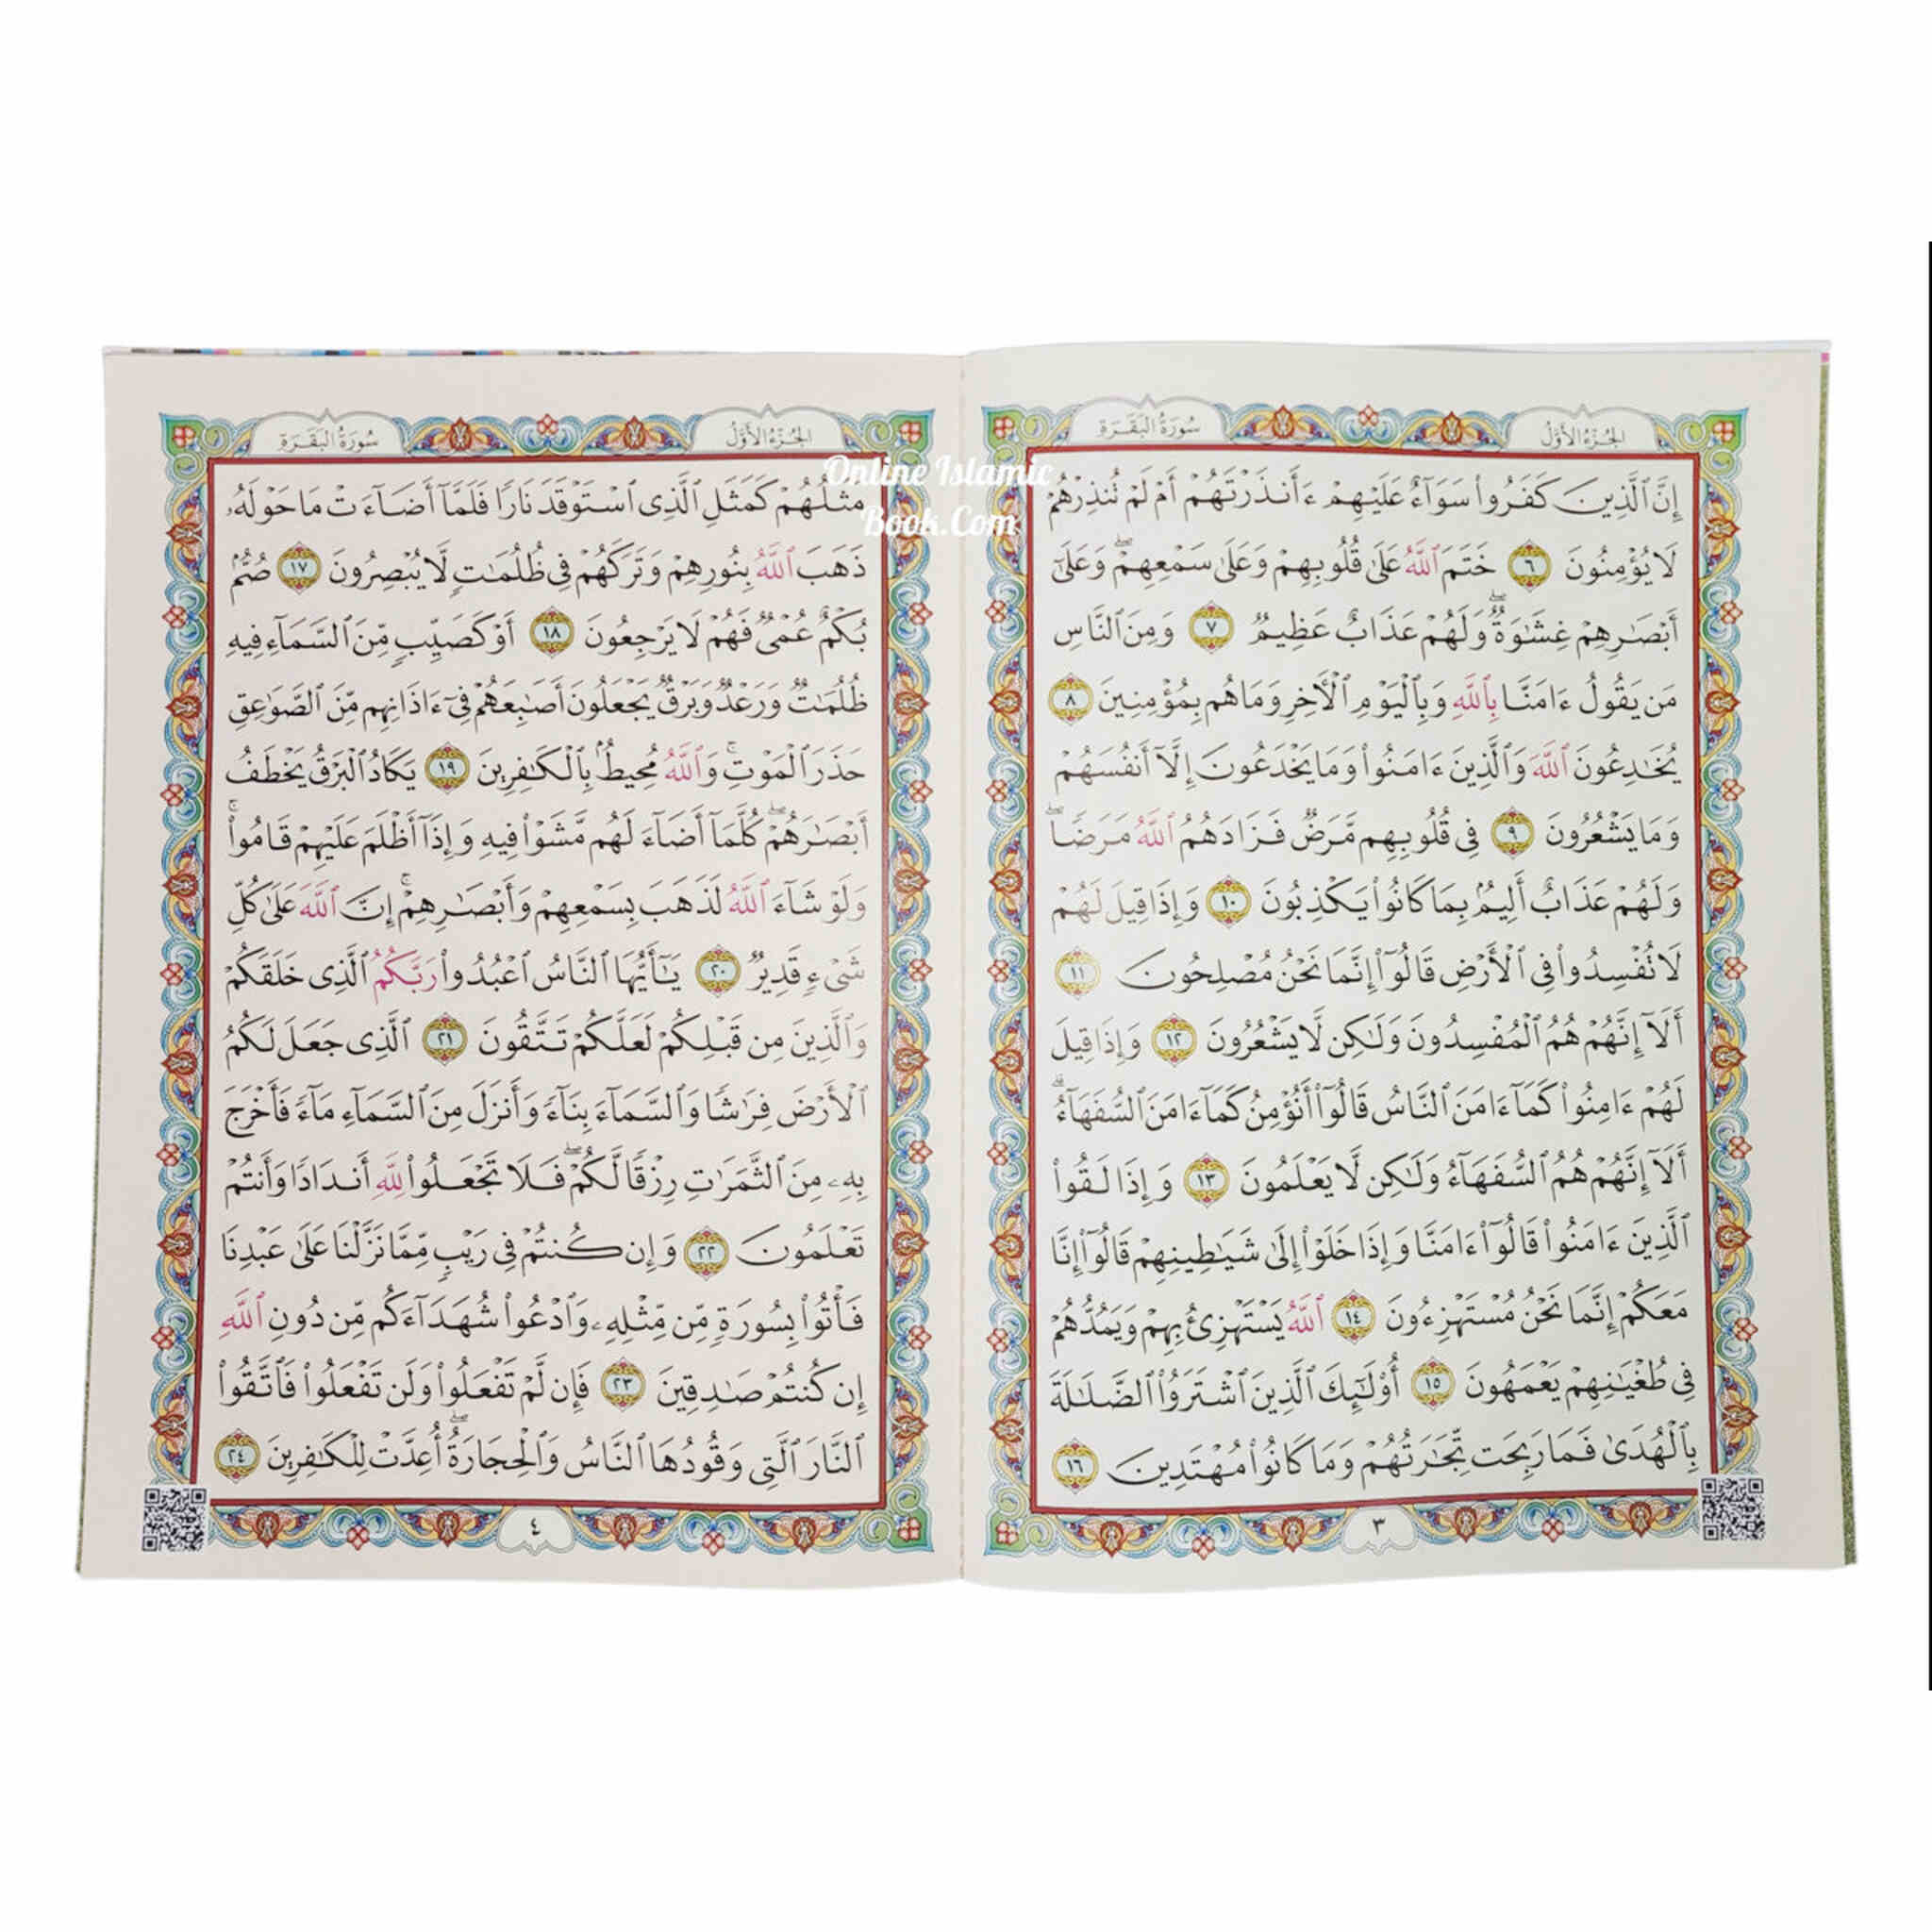 الجُزْءُ الأَوَّلُ
سُورَةُ البَقَرَةِ
إِنَّ ٱلَّذِينَ كَفَرُوا۟ سَوَآءٌ عَلَيْهِمْ ءَأَنذَرْتَهُمْ أَمْ لَمْ تُنذِرْهُمْ
لَا يُؤْمِنُونَ ٦ خَتَمَ ٱللَّهُ عَلَىٰ قُلُوبِهِمْ وَعَلَىٰ سَمْعِهِمْ ۖ وَعَلَىٰٓ
أَبْصَٰرِهِمْ غِشَٰوَةٌ ۖ وَلَهُمْ عَذَابٌ عَظِيمٌ ٧ وَمِنَ ٱلنَّاسِ
مَن يَقُولُ ءَامَنَّا بِٱللَّهِ وَبِٱلْيَوْمِ ٱلْأَخِرِ وَمَا هُم بِمُؤْمِنِينَ ٨
يُخَٰدِعُونَ ٱللَّهَ وَٱلَّذِينَ ءَامَنُوا۟ وَمَا يَخْدَعُونَ إِلَّآ أَنفُسَهُمْ
وَمَا يَشْعُرُونَ ٩ فِى قُلُوبِهِم مَّرَضٌ فَزَادَهُمُ ٱللَّهُ مَرَضًا ۖ
وَلَهُمْ عَذَابٌ أَلِيمٌۢ بِمَا كَانُوا۟ يَكْذِبُونَ ١٠ وَإِذَا قِيلَ لَهُمْ
لَا تُفْسِدُوا۟ فِى ٱلْأَرْضِ قَالُوٓا۟ إِنَّمَا نَحْنُ مُصْلِحُونَ ١١
أَلَآ إِنَّهُمْ هُمُ ٱلْمُفْسِدُونَ وَلَٰكِن لَّا يَشْعُرُونَ ١٢ وَإِذَا قِيلَ
لَهُمْ ءَامِنُوا۟ كَمَآ ءَامَنَ ٱلنَّاسُ قَالُوٓا۟ أَنُؤْمِنُ كَمَآ ءَامَنَ ٱلسُّفَهَآءُ ۗ
أَلَآ إِنَّهُمْ هُمُ ٱلسُّفَهَآءُ وَلَٰكِن لَّا يَعْلَمُونَ ١٣ وَإِذَا لَقُوا۟
ٱلَّذِينَ ءَامَنُوا۟ قَالُوٓا۟ ءَامَنَّا وَإِذَا خَلَوْا۟ إِلَىٰ شَيَٰطِينِهِمْ قَالُوٓا۟ إِنَّا
مَعَكُمْ إِنَّمَا نَحْنُ مُسْتَهْزِءُونَ ١٤ ٱللَّهُ يَسْتَهْزِئُ بِهِمْ وَيَمُدُّهُمْ
فِى طُغْيَٰنِهِمْ يَعْمَهُونَ ١٥ أُو۟لَٰٓئِكَ ٱلَّذِينَ ٱشْتَرَوُا۟ ٱلضَّلَٰلَةَ
بِٱلْهُدَىٰ فَمَا رَبِحَت تِّجَٰرَتُهُمْ وَمَا كَانُوا۟ مُهْتَدِينَ ١٦
٣
الجُزْءُ الأَوَّلُ
سُورَةُ البَقَرَةِ
مَثَلُهُمْ كَمَثَلِ ٱلَّذِى ٱسْتَوْقَدَ نَارًا فَلَمَّآ أَضَآءَتْ مَا حَوْلَهُۥ
ذَهَبَ ٱللَّهُ بِنُورِهِمْ وَتَرَكَهُمْ فِى ظُلُمَٰتٍ لَّا يُبْصِرُونَ ١٧ صُمٌّۢ
بُكْمٌ عُمْىٌ فَهُمْ لَا يَرْجِعُونَ ١٨ أَوْ كَصَيِّبٍ مِّنَ ٱلسَّمَآءِ فِيهِ
ظُلُمَٰتٌ وَرَعْدٌ وَبَرْقٌ يَجْعَلُونَ أَصَٰبِعَهُمْ فِىٓ ءَاذَانِهِم مِّنَ ٱلصَّوَٰعِقِ
حَذَرَ ٱلْمَوْتِ ۚ وَٱللَّهُ مُحِيطٌۢ بِٱلْكَٰفِرِينَ ١٩ يَكَادُ ٱلْبَرْقُ يَخْطَفُ
أَبْصَٰرَهُمْ ۖ كُلَّمَآ أَضَآءَ لَهُم مَّشَوْا۟ فِيهِ وَإِذَآ أَظْلَمَ عَلَيْهِمْ قَامُوا۟ ۚ
وَلَوْ شَآءَ ٱللَّهُ لَذَهَبَ بِسَمْعِهِمْ وَأَبْصَٰرِهِمْ ۚ إِنَّ ٱللَّهَ عَلَىٰ كُلِّ
شَىْءٍ قَدِيرٌ ٢٠ يَٰٓأَيُّهَا ٱلنَّاسُ ٱعْبُدُوا۟ رَبَّكُمُ ٱلَّذِى خَلَقَكُمْ
وَٱلَّذِينَ مِن قَبْلِكُمْ لَعَلَّكُمْ تَتَّقُونَ ٢١ ٱلَّذِى جَعَلَ لَكُمُ
ٱلْأَرْضَ فِرَٰشًا وَٱلسَّمَآءَ بِنَآءً وَأَنزَلَ مِنَ ٱلسَّمَآءِ مَآءً فَأَخْرَجَ
بِهِۦ مِنَ ٱلثَّمَرَٰتِ رِزْقًا لَّكُمْ ۖ فَلَا تَجْعَلُوا۟ لِلَّهِ أَندَادًا وَأَنتُمْ
تَعْلَمُونَ ٢٢ وَإِن كُنتُمْ فِى رَيْبٍ مِّمَّا نَزَّلْنَا عَلَىٰ عَبْدِنَا
فَأْتُوا۟ بِسُورَةٍ مِّن مِّثْلِهِۦ وَٱدْعُوا۟ شُهَدَآءَكُم مِّن دُونِ ٱللَّهِ
إِن كُنتُمْ صَٰدِقِينَ ٢٣ فَإِن لَّمْ تَفْعَلُوا۟ وَلَن تَفْعَلُوا۟ فَٱتَّقُوا۟
ٱلنَّارَ ٱلَّتِى وَقُودُهَا ٱلنَّاسُ وَٱلْحِجَارَةُ ۖ أُعِدَّتْ لِلْكَٰفِرِينَ ٢٤
٤
Online Islamic
Book.Com